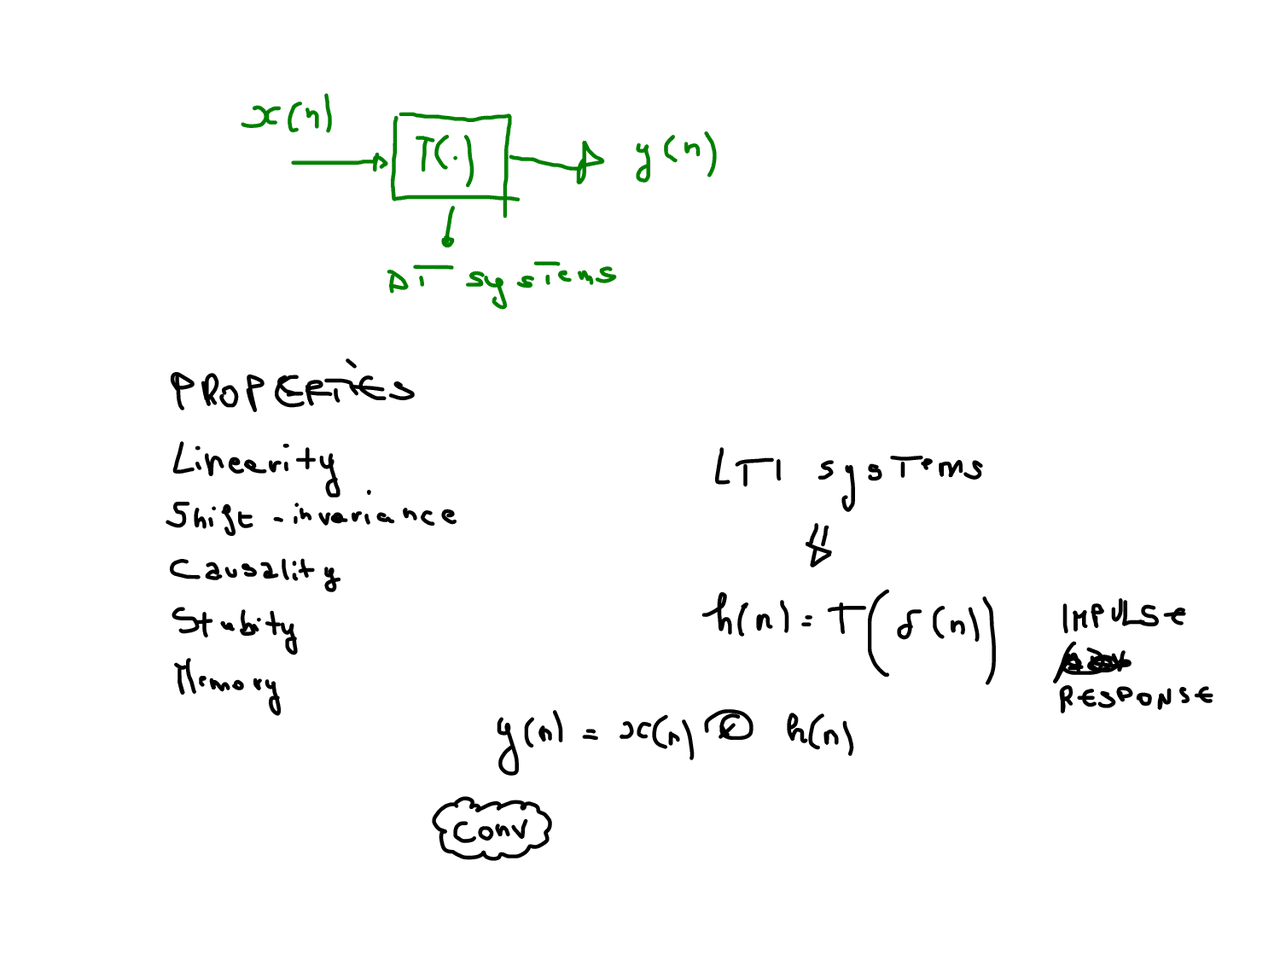 x(n)
T(·)
y(n)
DT systems
PROPERTIES
Linearity
Shift-invariance
Causality
Stabity
Memory
LTI systems
⇓
h(n) = T(δ(n))
IMPULSE
RESPONSE
y(n) = x(n) h(n)
Conv